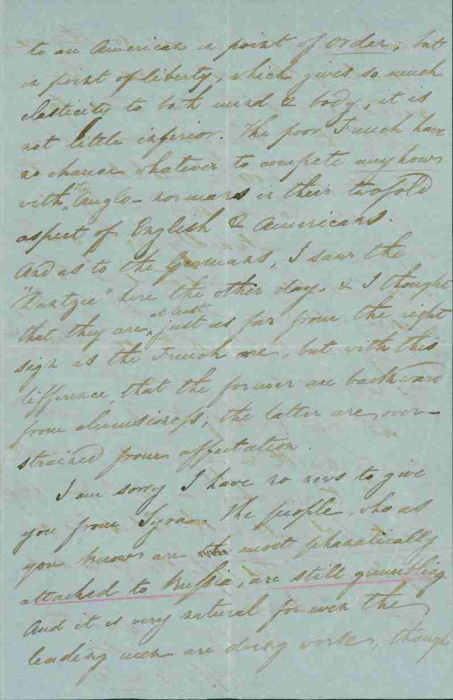 to an American in point of order; but
in point of liberty, which gives so much
elasticity to both mind & body, it is
not little inferior. The poor French have
no chance whatever to compete anyhows
with the Anglo-normans in their twofold
aspect of English & Americans.
And as to the Germans, I saw the
here the other day, & I thought
that they are, at least just as far from the right
sign as the French are, but with this
difference, that the former are backward
from clumsiness, the latter are over-
strained from affectation.
I am sorry I have no news to give
you from Syra. The people, who as
you know are most phanatically
attached to Russia, are still grumbling
And it is very natural for even the
leading men are doing worse, though